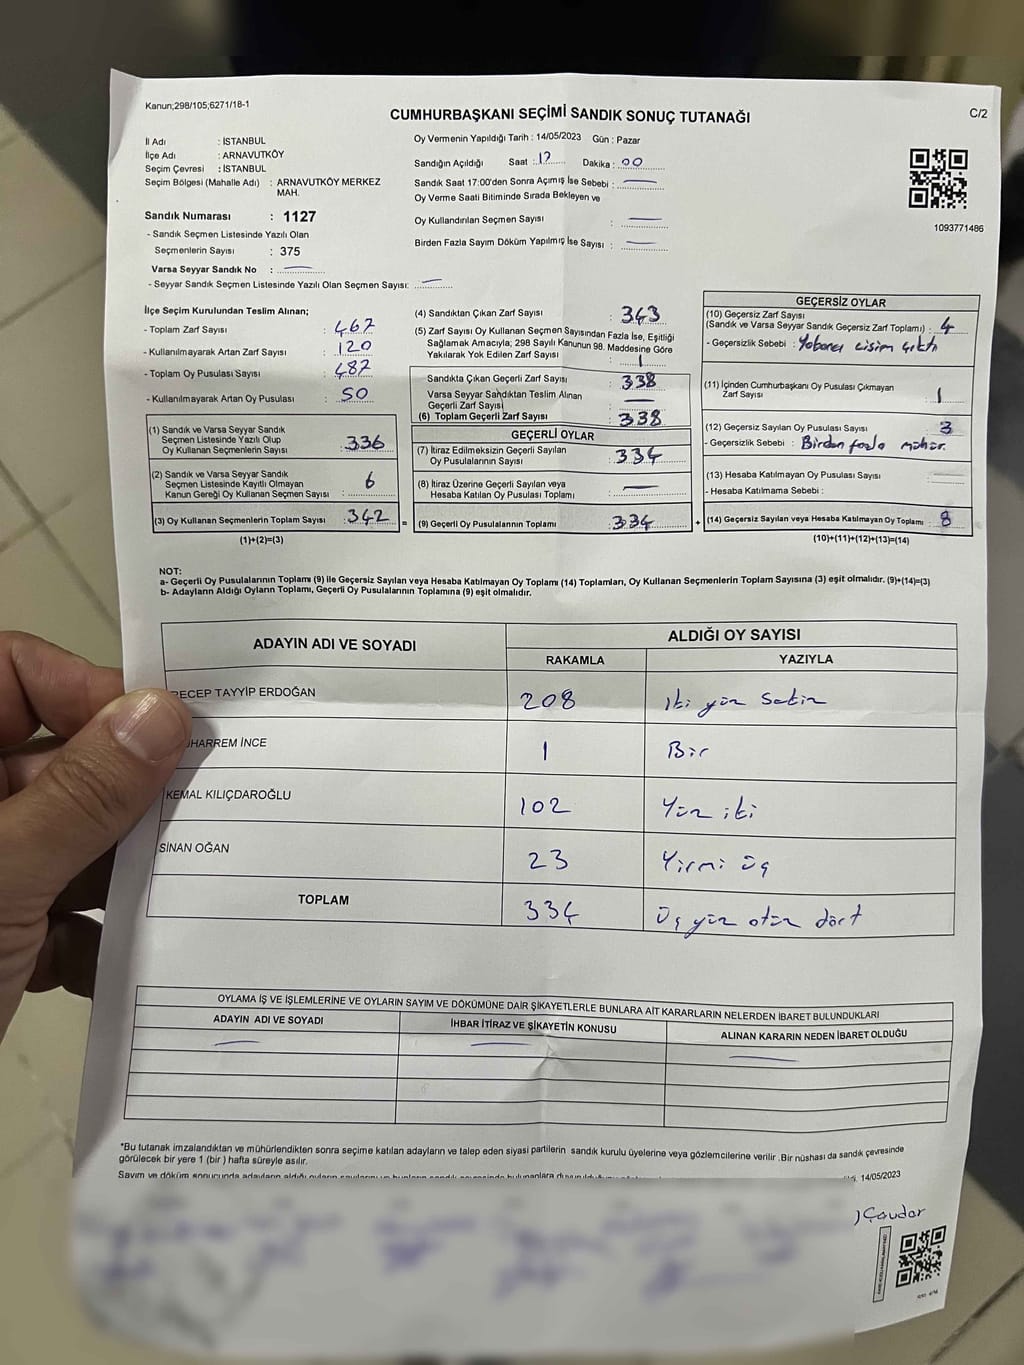 Kanun;298/105;6271/18-1
CUMHURBAŞKANI SEÇİMİ SANDIK SONUÇ TUTANAĞI
C/2
İl Adı : İSTANBUL
İlçe Adı : ARNAVUTKÖY
Seçim Çevresi : İSTANBUL
Seçim Bölgesi (Mahalle Adı) : ARNAVUTKÖY MERKEZ
MAH.
Sandık Numarası : 1127
- Sandık Seçmen Listesinde Yazılı Olan
Seçmenlerin Sayısı : 375
Varsa Seyyar Sandık No :
- Seyyar Sandık Seçmen Listesinde Yazılı Olan Seçmen Sayısı:
Oy Vermenin Yapıldığı Tarih : 14/05/2023 Gün : Pazar
Sandığın Açıldığı Saat : 17 Dakika : 00
Sandık Saat 17:00'den Sonra Açımış İse Sebebi :
Oy Verme Saati Bitiminde Sırada Bekleyen ve
Oy Kullandırılan Seçmen Sayısı :
Birden Fazla Sayım Döküm Yapılmış İse Sayısı :
1093771486
İlçe Seçim Kurulundan Teslim Alınan;
- Toplam Zarf Sayısı : 462
- Kullanılmayarak Artan Zarf Sayısı : 120
- Toplam Oy Pusulası Sayısı : 482
- Kullanılmayarak Artan Oy Pusulası : 50
(1) Sandık ve Varsa Seyyar Sandık
Seçmen Listesinde Yazılı Olup
Oy Kullanan Seçmenlerin Sayısı : 336
(2) Sandık ve Varsa Seyyar Sandık
Seçmen Listesinde Kayıtlı Olmayan
Kanun Gereği Oy Kullanan Seçmen Sayısı : 6
(3) Oy Kullanan Seçmenlerin Toplam Sayısı : 342 =
(1)+(2)=(3)
(4) Sandıktan Çıkan Zarf Sayısı : 343
(5) Zarf Sayısı Oy Kullanan Seçmen Sayısından Fazla İse, Eşitliği
Sağlamak Amacıyla; 298 Sayılı Kanunun 98. Maddesine Göre
Yakılarak Yok Edilen Zarf Sayısı : 1
Sandıkta Çıkan Geçerli Zarf Sayısı : 338
Varsa Seyyar Sandıktan Teslim Alınan
Geçerli Zarf Sayısı :
(6) Toplam Geçerli Zarf Sayısı : 338
GEÇERLİ OYLAR
(7) İtiraz Edilmeksizin Geçerli Sayılan
Oy Pusulalarının Sayısı : 334
(8) İtiraz Üzerine Geçerli Sayılan veya
Hesaba Katılan Oy Pusulası Toplamı :
(9) Geçerli Oy Pusulalarının Toplamı : 334 +
GEÇERSİZ OYLAR
(10) Geçersiz Zarf Sayısı
(Sandık ve Varsa Seyyar Sandık Geçersiz Zarf Toplamı) : 4
- Geçersizlik Sebebi : Yabancı cisim çıktı
(11) İçinden Cumhurbaşkanı Oy Pusulası Çıkmayan
Zarf Sayısı : 1
(12) Geçersiz Sayılan Oy Pusulası Sayısı : 3
- Geçersizlik Sebebi : Birden fazla mühür.
(13) Hesaba Katılmayan Oy Pusulası Sayısı :
- Hesaba Katılmama Sebebi :
(14) Geçersiz Sayılan veya Hesaba Katılmayan Oy Toplamı : 8
(10)+(11)+(12)+(13)=(14)
NOT:
a- Geçerli Oy Pusulalarının Toplamı (9) ile Geçersiz Sayılan veya Hesaba Katılmayan Oy Toplamı (14) Toplamları, Oy Kullanan Seçmenlerin Toplam Sayısına (3) eşit olmalıdır. (9)+(14)=(3)
b- Adayların Aldığı Oyların Toplamı, Geçerli Oy Pusulalarının Toplamına (9) eşit olmalıdır.
ADAYIN ADI VE SOYADI
ALDIĞI OY SAYISI
RAKAMLA YAZIYLA
RECEP TAYYİP ERDOĞAN 208 İki yüz sekiz
MUHARREM İNCE 1 Bir
KEMAL KILIÇDAROĞLU 102 Yüz iki
SİNAN OĞAN 23 Yirmi üç
TOPLAM 334 Üç yüz otuz dört
OYLAMA İŞ VE İŞLEMLERİNE VE OYLARIN SAYIM VE DÖKÜMÜNE DAİR ŞİKAYETLERLE BUNLARA AİT KARARLARIN NELERDEN İBARET BULUNDUKLARI
ADAYIN ADI VE SOYADI İHBAR İTİRAZ VE ŞİKAYETİN KONUSU ALINAN KARARIN NEDEN İBARET OLDUĞU
*Bu tutanak imzalandıktan ve mühürlendikten sonra seçime katılan adayların ve talep eden siyasi partilerin sandık kurulu üyelerine veya gözlemcilerine verilir .Bir nüshası da sandık çevresinde
görülecek bir yere 1 (bir ) hafta süreyle asılır.
Sayım ve döküm sonucunda adayların aldığı oyların 14/05/2023
Çavdar